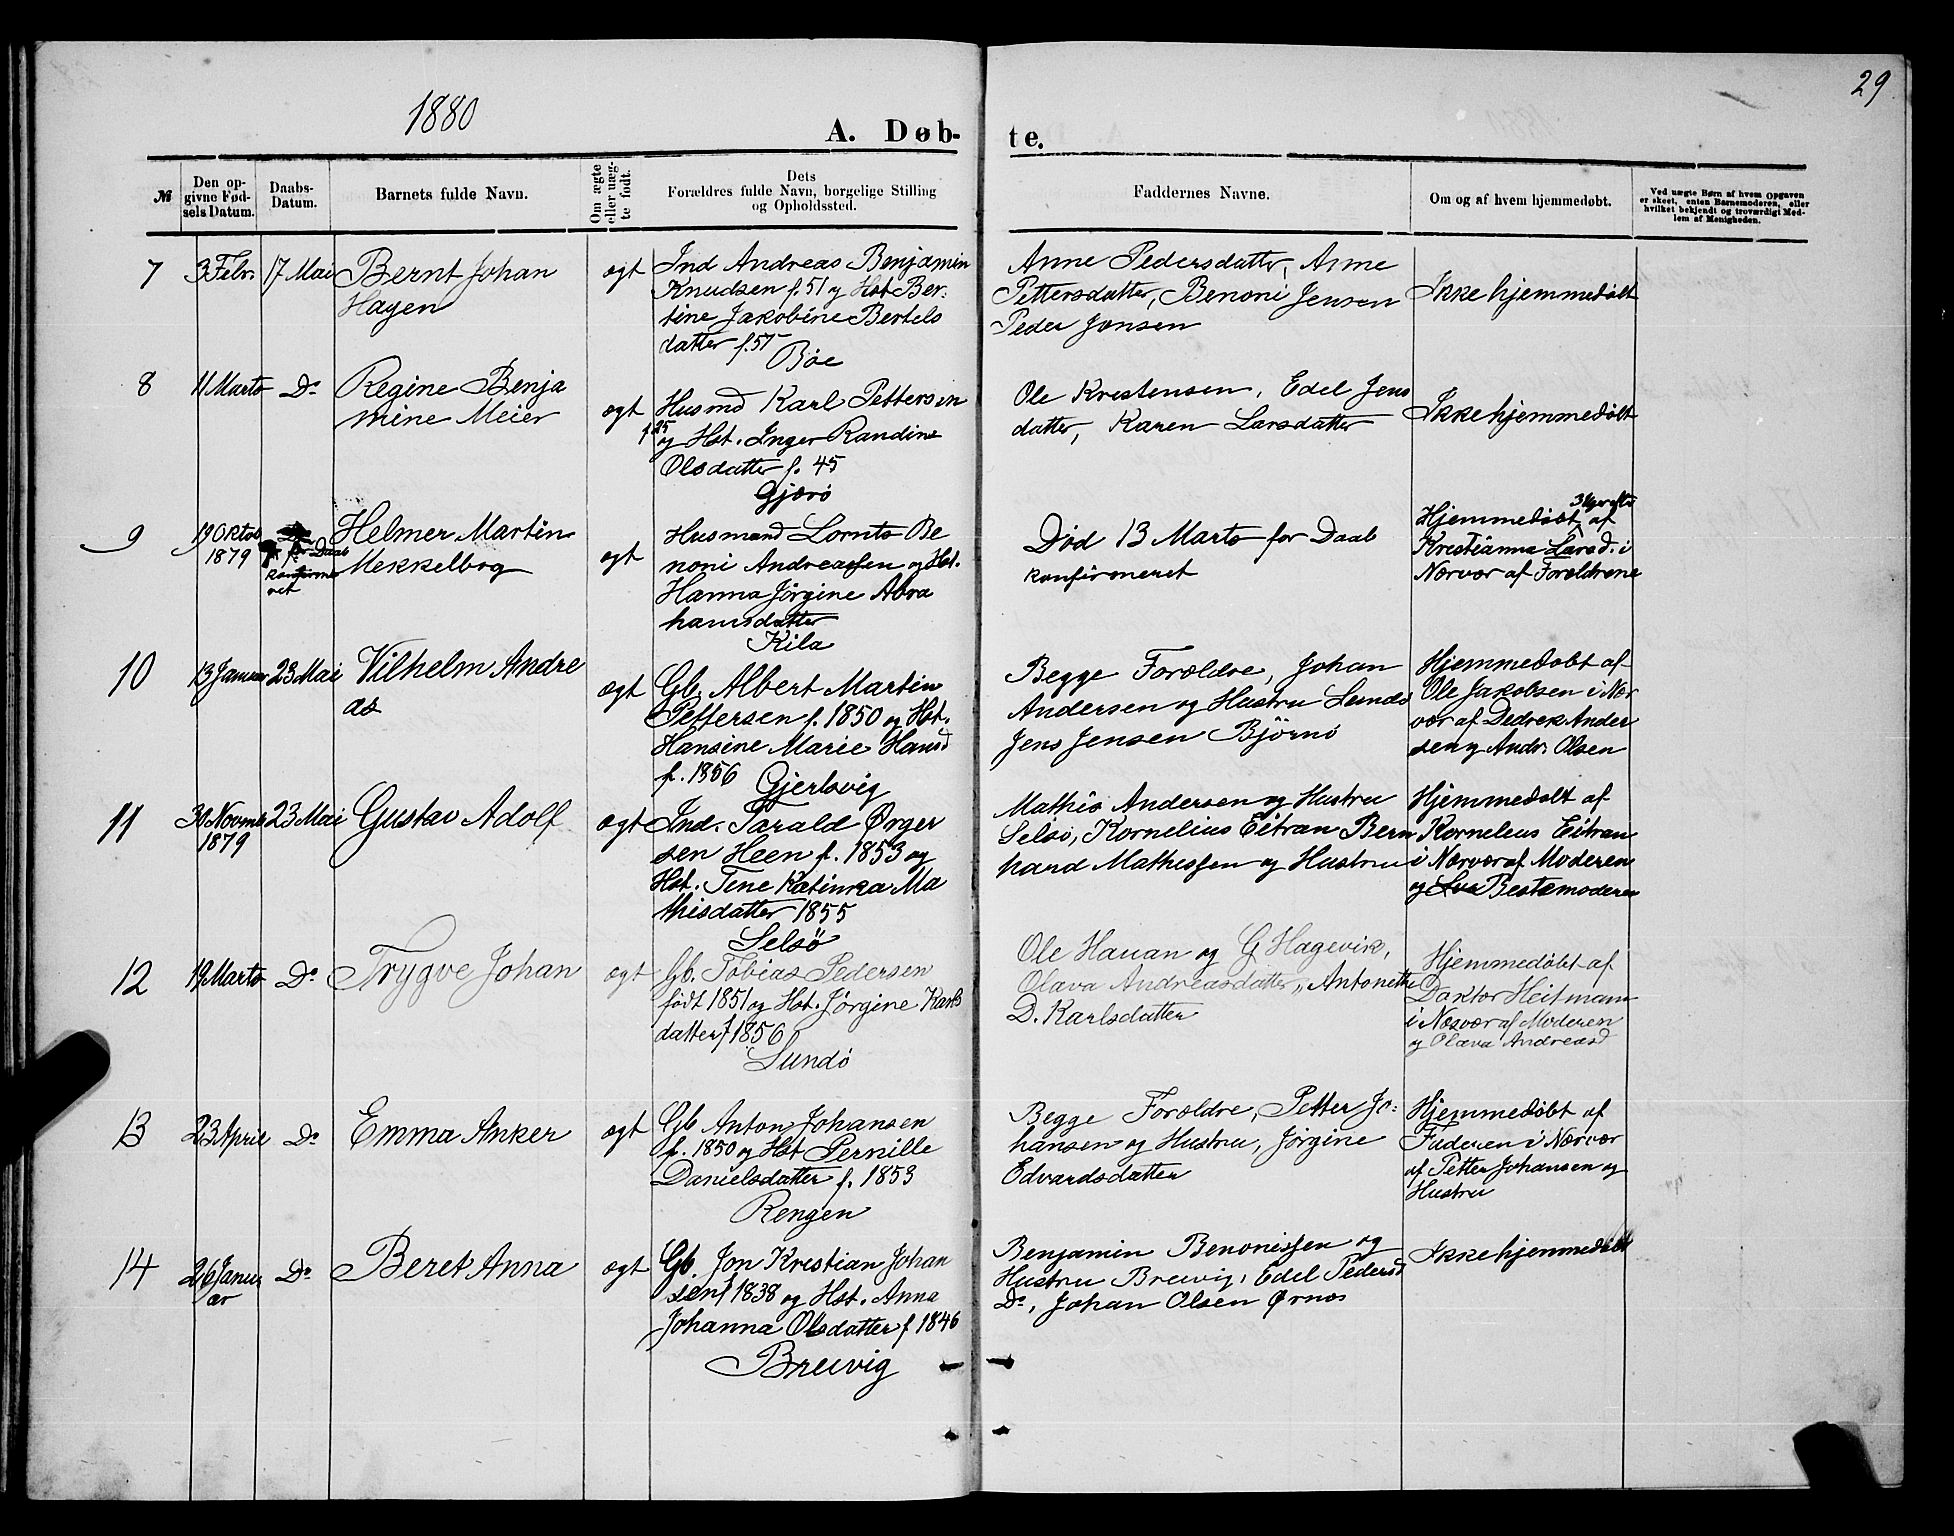 29
1880
A. Døb-
te.
№
Den op-
givne Fød-
sels Datum.
Daabs-
Datum.
Barnets fulde Navn.
Om ægte
eller uæg-
te født.
Dets
Forældres fulde Navn, borgelige Stilling
og Opholdssted.
Faddernes Navne.
Om og af hvem hjemmedøbt.
Ved uægte Børn af hvem Opgaven
er skeet, enten Barnemoderen, eller
hvilket bekjendt og troværdigt Med-
lem af Menigheden.
7
3 Febr.
17 Mai
Bernt Johan
Hagen
ægt
Ind Andreas Benjamin
Knudsen f. 51 og Hst Ber-
tine Jakobine Bertels
datter f. 57
Bøe
Anne Pedersdatter, Anne
Pettersdatter, Benoni Jensen
Peder Jonsen
Ikke hjemmedøbt
8
11 Marts
Do
Regine Benja
mine Meier
ægt
Husmd Karl Pettersen
f. 35
og Hst. Inger Randine
Olsdatter f. 45
Gjærø
Ole Kristensen, Edel Jens
datter, Karen Larsdatter
Ikke hjemmedøbt
9
19 Oktob
1879
før Daab
konfirme
ret
Helmer Martin
Mekkelborg
ægt
Husmand Lornts Be
noni Andreassen og Hst.
Hanna Jørgine Abra
hamsdatter
Kila
Død 13 Marts før Daab
konfirmeret
Hjemmedøbt af
Kristianna Larsd. i
Nærvær af Forældrene
10
13 Januar
23 Mai
Vilhelm Andre
as
ægt
Gb. Albert Martin
Pettersen f. 1850 og Hst.
Hansine Marie Hansd
f. 1856 Gjerlsvig
Begge Forældre, Johan
Andersen og Hustru Lundø
Jens Jensen Bjørnø
Hjemmedøbt af
Ole Jakobsen i Nær
vær af Dedrek Ander
sen og Andr. Olsen
11
30 Novmb
1879
23 Mai
Gustav Adolf
ægt
Ind. Tarald Ørger
sen Heen f. 1853 og
Hst. Tene Katinka Ma
thisdatter 1855
Selsø
Mathis Andersen og Hustru
Selsø, Kornelius Eitran Bern
hard Mathissen og Hustru
Hjemmedøbt af
Kornelius Eitran
i Nærvær af Moderen
og Bestemoderen
12
19 Marts
Do
Trygve Johan
ægt
Gb. Tobias Pedersen
født 1851 og Hst. Jørgine Karls
datter f 1856
Sundø
Ole Hauan og G Hagevik,
Olava Andreasdatter, Antonette
D. Karlsdatter
Hjemmedøbt af
Doktor Heitmann
i Næsvær af Moderen
og Olava Andreasd
13
23 April
Do
Emma Anker
ægt
Gb Anton Johansen
f. 1850 og Hst Pernille
Danielsdatter f. 1853
Rengen
Begge Forældre, Petter Jo-
hansen og Hustru, Jørgine
Edvardsdatter
Hjemmedøbt af
Faderen i Nærvær
af Petter Johansen og
Hustru
14
26 Janu
ar
Do
Beret Anna
ægt
Gb. Jon Kristian Johan
sen f 1838 og Hst. Anna
Johanna Olsdatter f 1846
Breivig
Benjamin Benonissen og
Hustru Breivig, Edel Pedersd
Do, Johan Olsen Ørnæs
Ikke hjemmedøbt